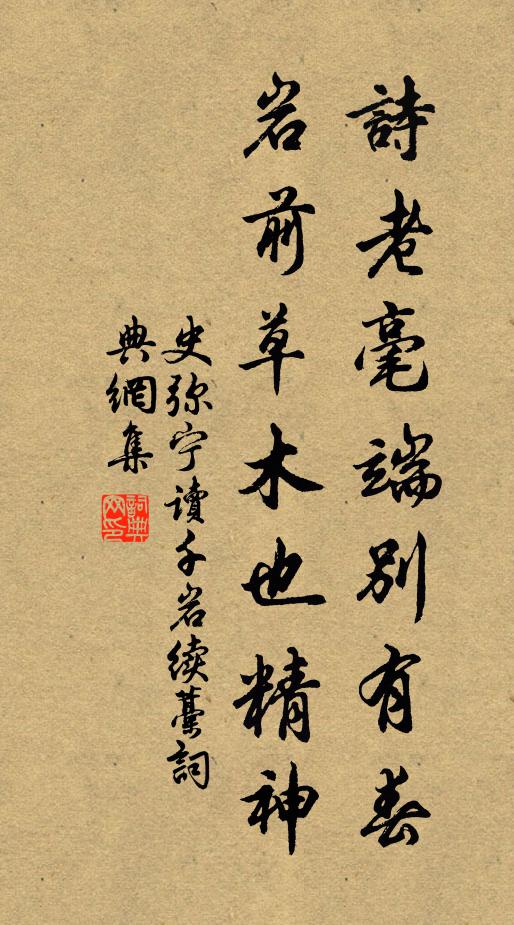 詩老毫端別有春
岩前草木也精神
史弥宁讀千岩续藁詞
典網集
詞典
网印